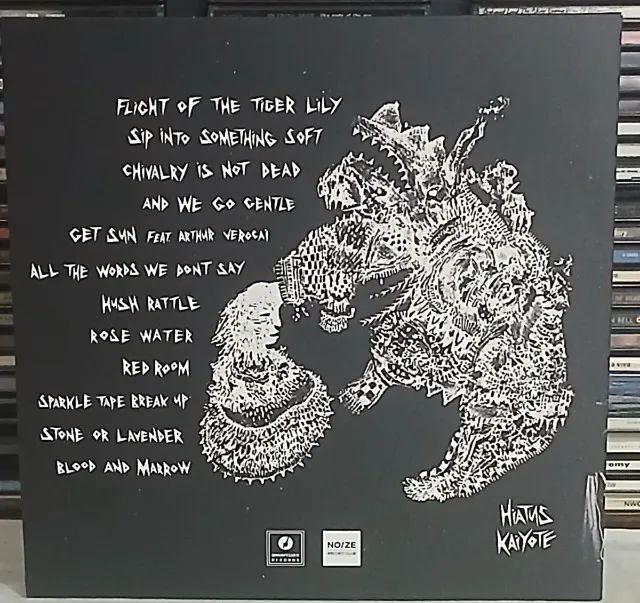 FLIGHT OF THE TIGER LILY
SIP INTO SOMETHING SOFT
CHIVALRY IS NOT DEAD
AND WE GO GENTLE
GET SUN FEAT. ARTHUR VEROCAI
ALL THE WORDS WE DONT SAY
HUSH RATTLE
ROSE WATER
RED ROOM
SPARKLE TAPE BREAK UP
STONE OR LAVENDER
BLOOD AND MARROW
HIATUS
KAIYOTE
RECORDS
NO/ZE
RECORD CLUB